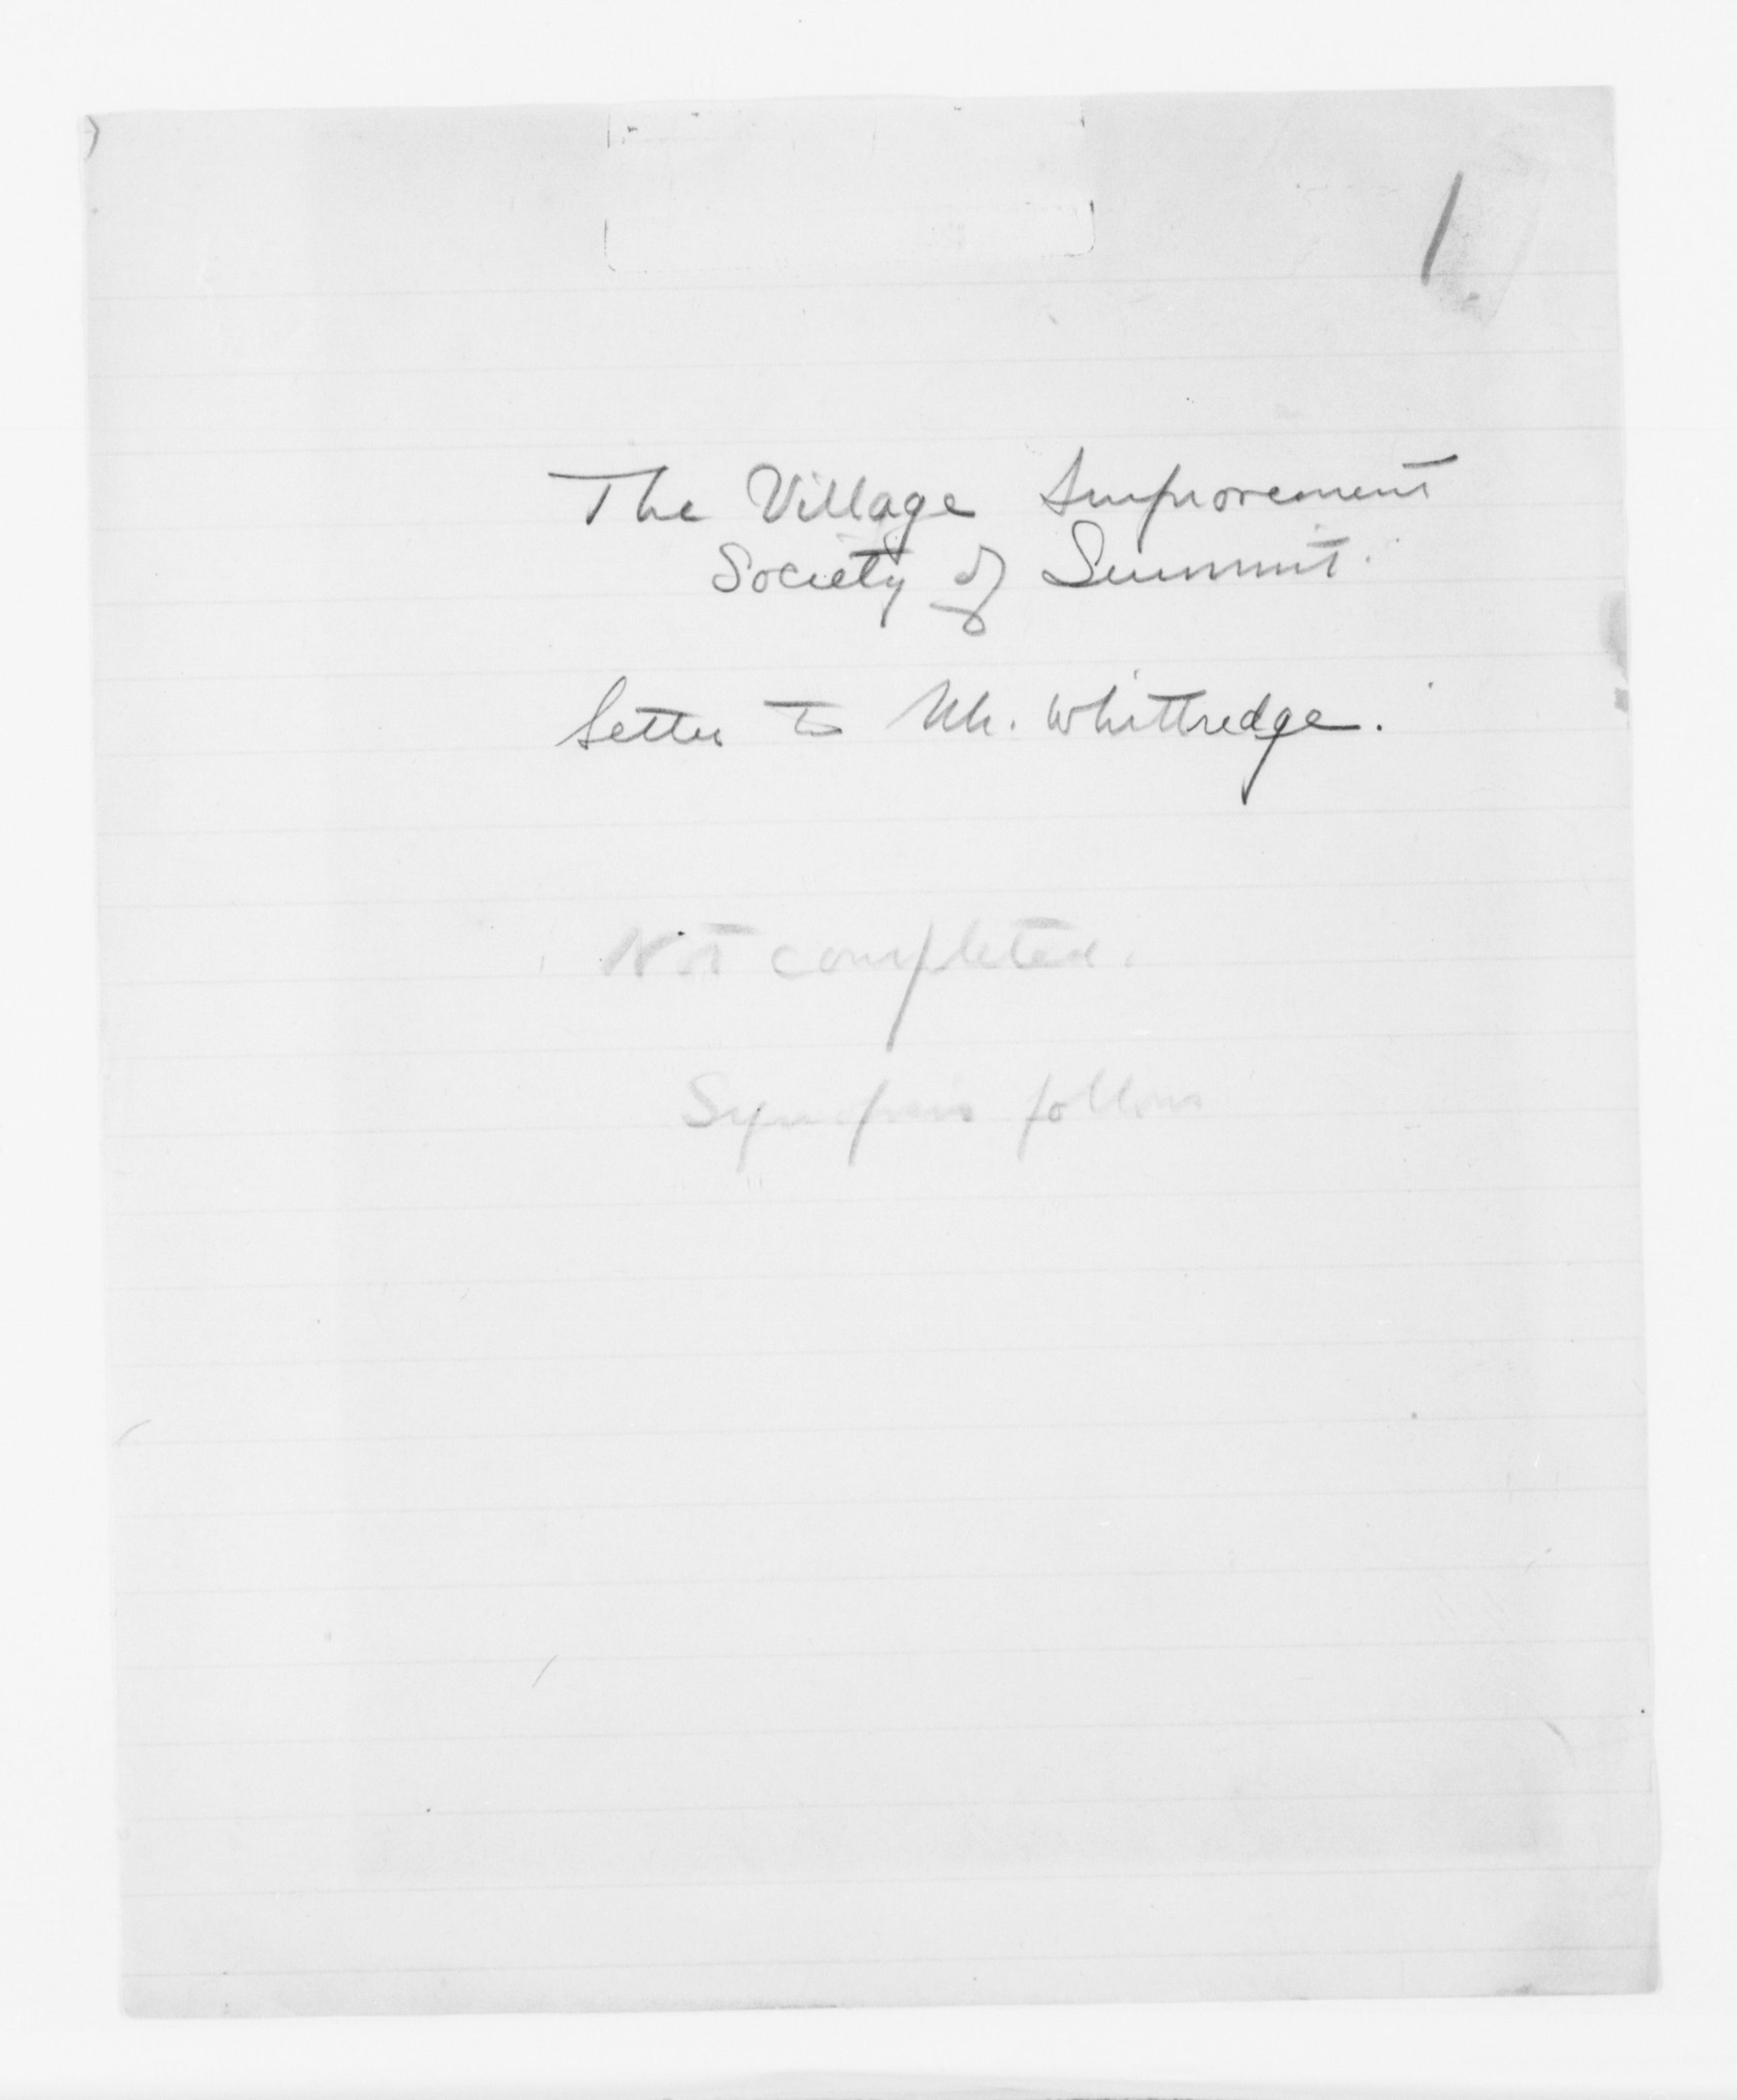 1
The Village Improvement
Society of Summit.
Letter to Mr. Whittredge.
Not completed.
Synopsis follows